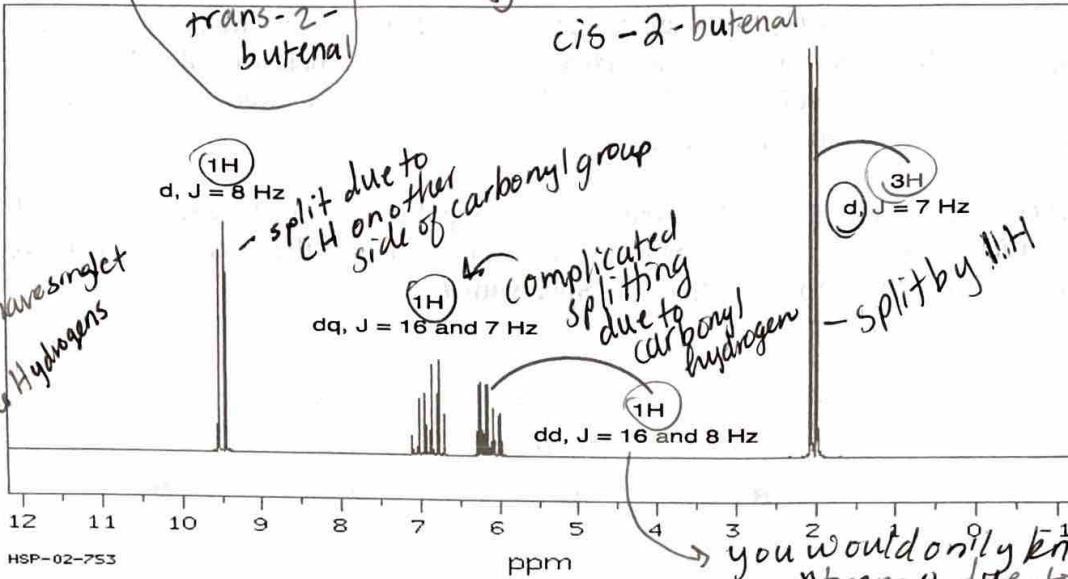 trans-2-
butenal
cis-2-butenal
1H
d, J = 8 Hz
split due to
CH on other
side of carbonyl group
3H
d, J = 7 Hz
split by 1H
singlet
Hydrogens
1H
dq, J = 16 and 7 Hz
complicated
splitting
due to
carbonyl
hydrogen
1H
dd, J = 16 and 8 Hz
12 11 10 9 8 7 6 5 4 3 2 1 0
HSP-02-753
ppm
you would only